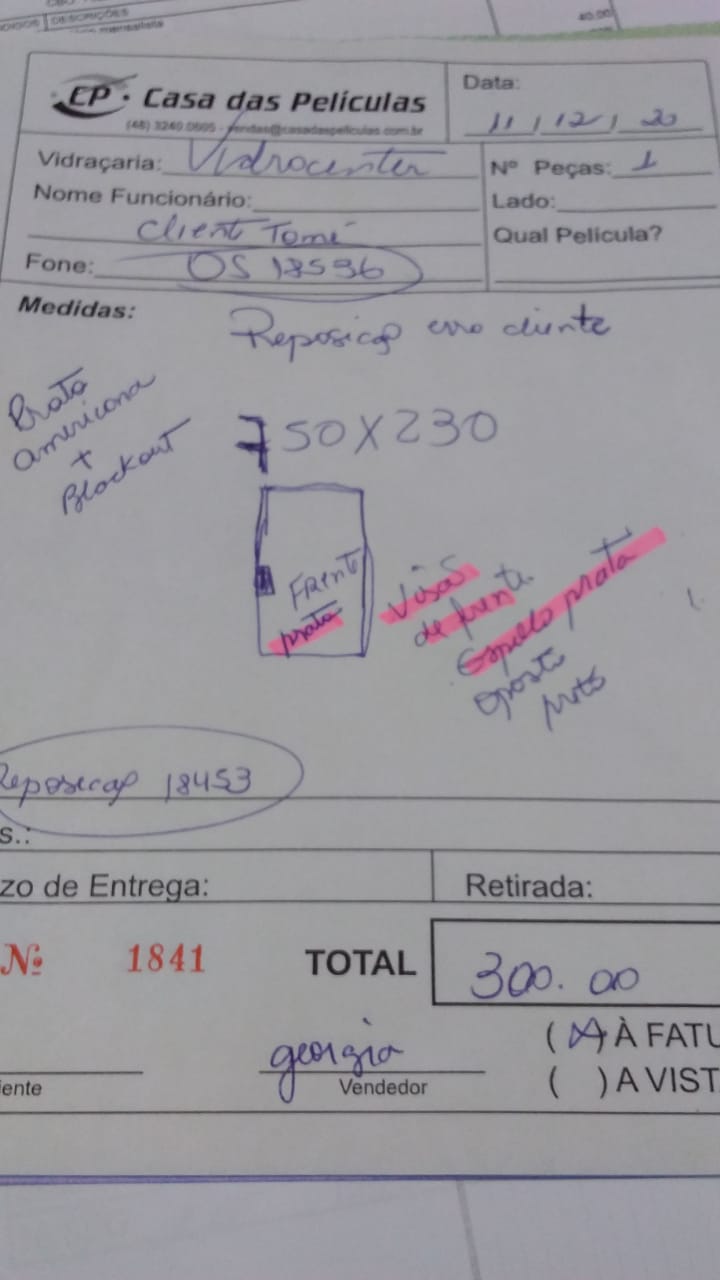 DESCRIÇÕES
mensalista
40.00
CP · Casa das Películas
(48) 3240.0605 - vendas@casadaspeliculas.com.br
Data:
11 / 12 / 20
Vidraçaria: Vidrocenter
Nº Peças: 1
Nome Funcionário:
Lado:
Client Tomé
Qual Película?
Fone: OS 18596
Medidas:
Reposicao erro cliente
Prata
americana
+
Blackout
750X230
Frente
prata
Visão
de frente
Espelho prata
oposto
preto
Reposicao 18453
s.:
zo de Entrega:
Retirada:
Nº 1841
TOTAL
300.00
(X) À FATU
georgia
iente
Vendedor
( ) A VIST